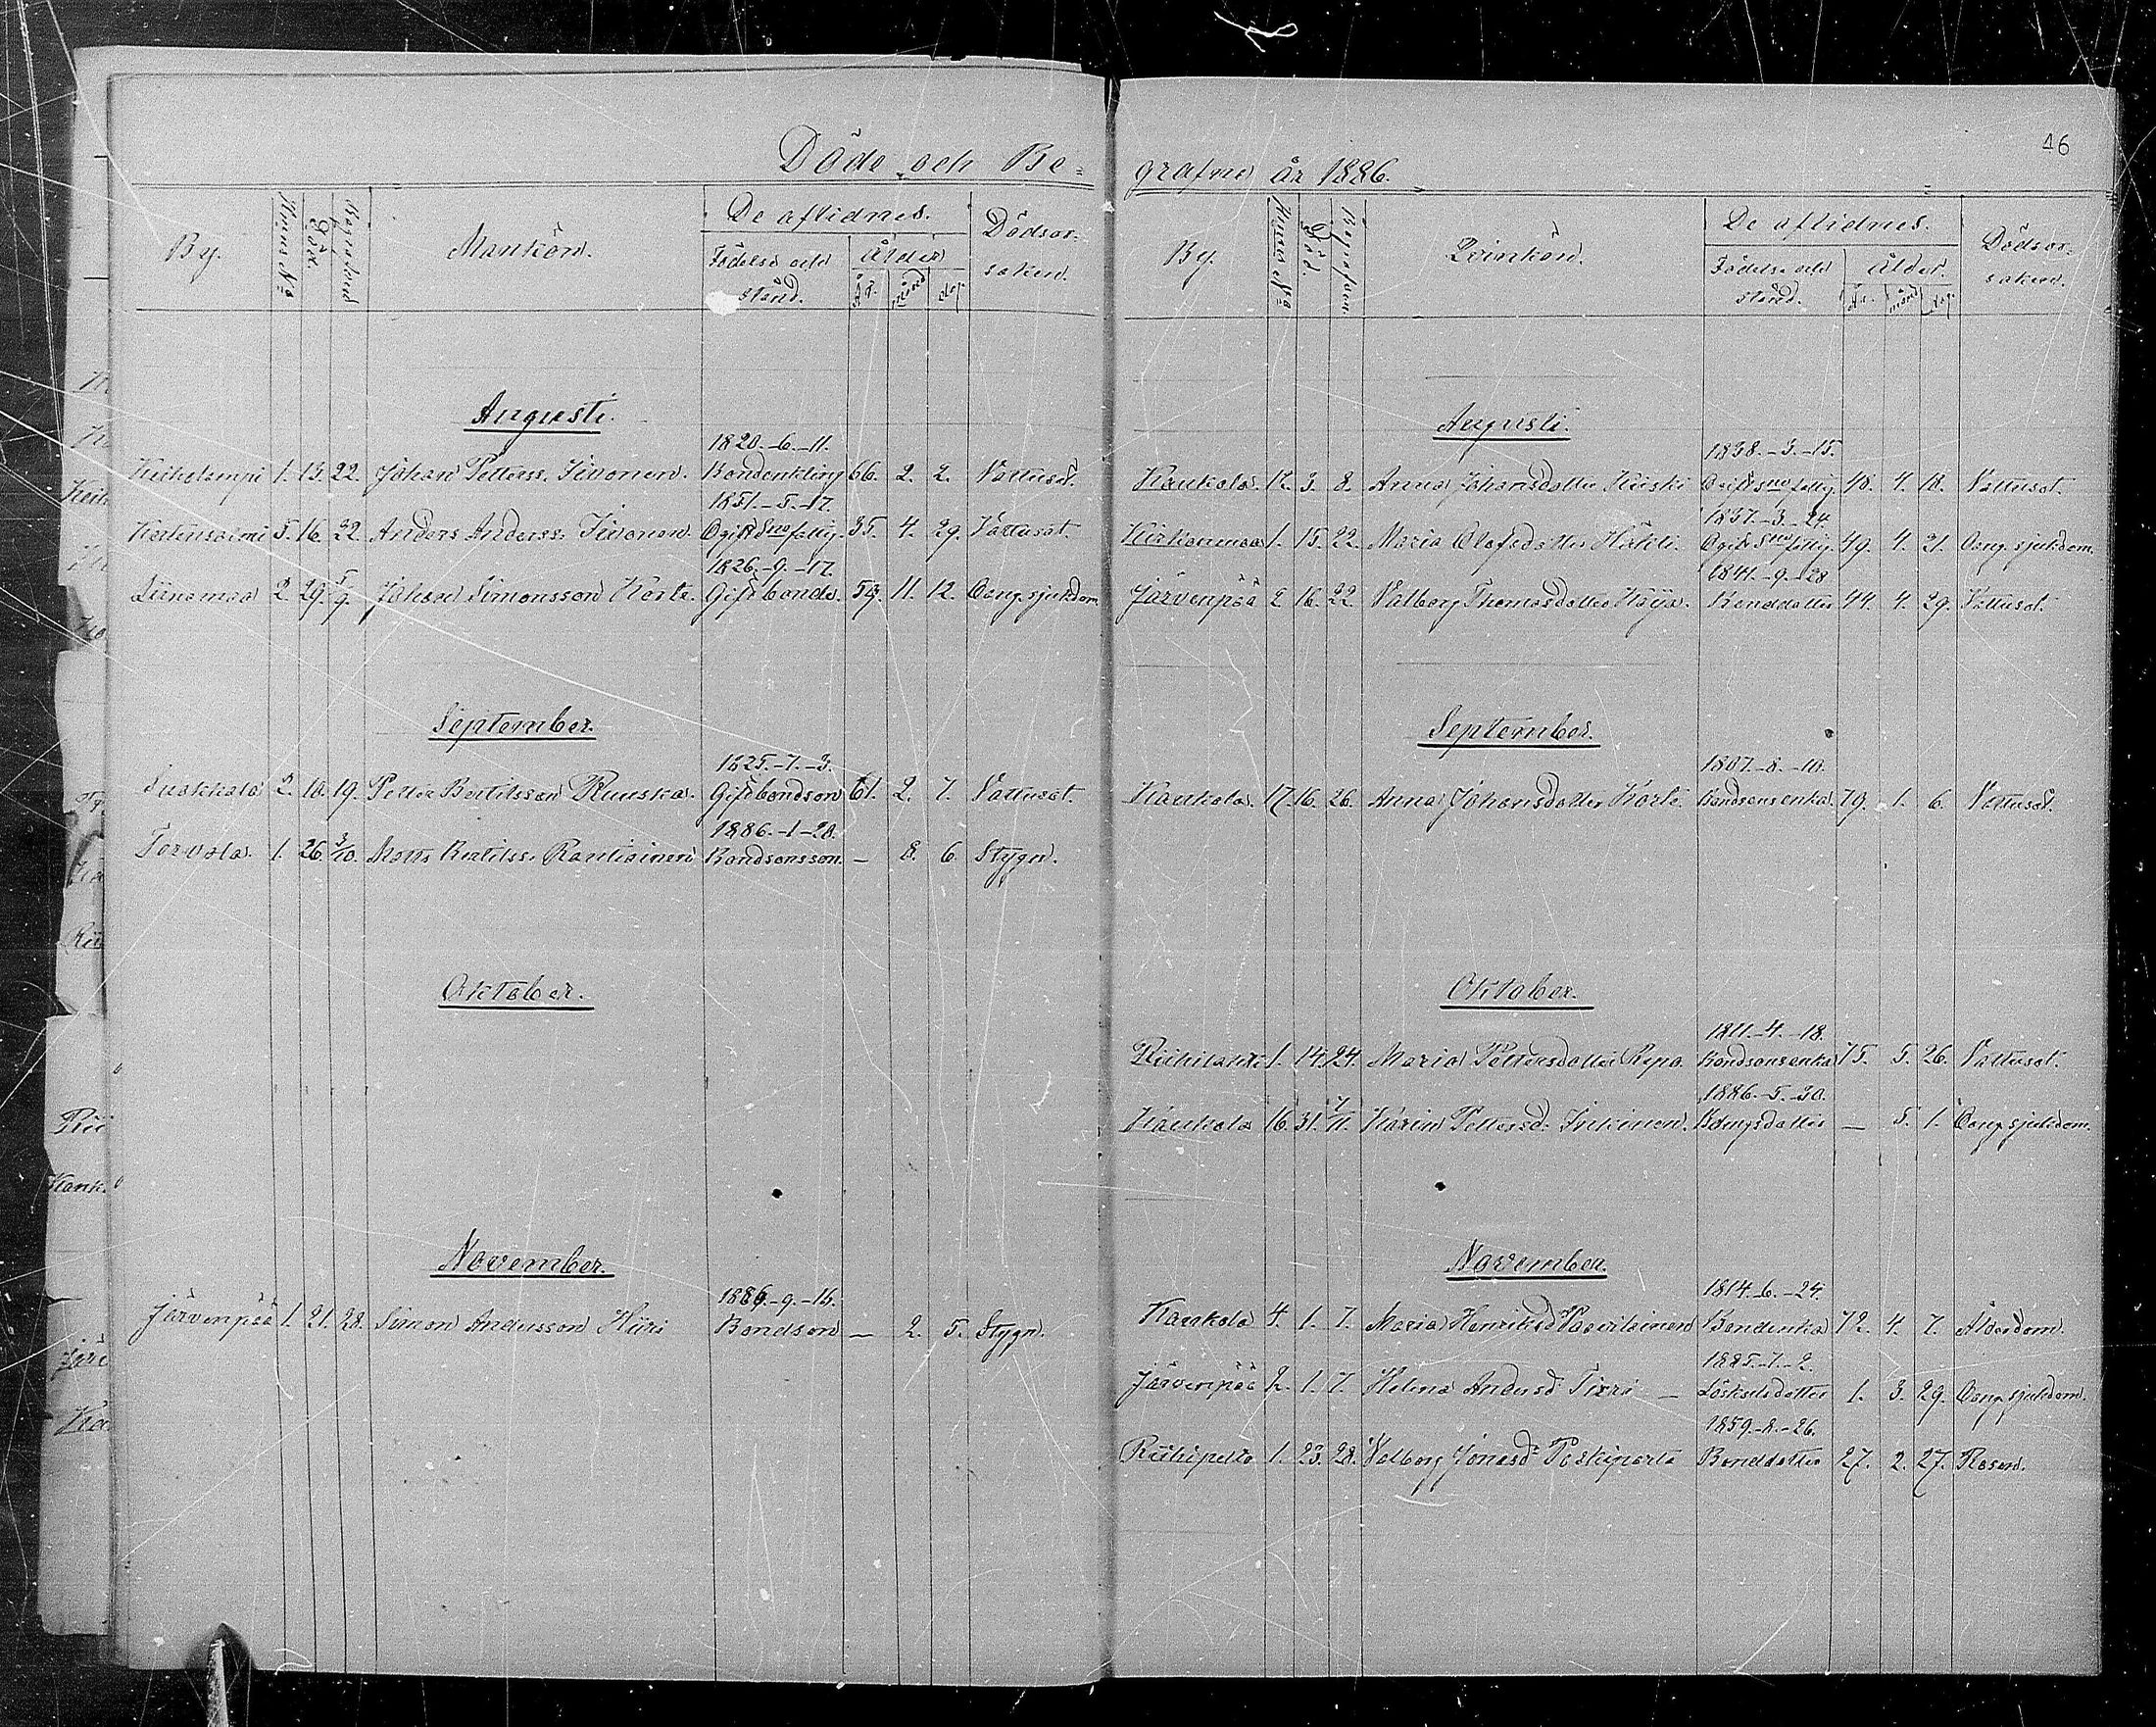 Döde och Be-
By.
Huus No
Död.
Mankön.
De aflidnes.
Födelse och
stånd.
Ålder
år.
månd
dag.
Dödsor-
saken.
Augusti.
1820.-6.-11.
1. 13. 22. Johan Petterss. Iivonen. Bondenkling 66. 2. 2. Vattusot.
1851.-5.-17.
5. 16. 22. Anders Anderss. Iivonen. Ogift 35. 4. 29. Vattusot.
1826.-9.-17.
Liinamaa 2. 29. 5/9. Johan Simonsson Körte. Gift bonde. 59. 11. 12. Oang. sjukdom
September.
1825.-7.-3.
Suokkala 2. 10. 19. Petter Bertilsson Ruuska. Gift bondson 61. 2. 7. Vattusot.
1886.-1-20.
Torvola. 1. 26. 3/10. Matts Bertilss. Rautiainen Bondsonsson. — 8. 6. Stygn.
Oktober.
November.
1886.-9.-16.
Järvenpää 1. 21. 28. Simon Andersson Hiiri Bondson — 2. 5. Stygn.
46
grafne år 1886.
By.
Huus No
Död
Begrafven
Qvinkön.
De aflidnes.
Födelse och
stånd.
Ålder.
år.
månd
dag
Dödsor-
saken.
Augusti.
1838.-3.-15.
Kaukola. 17. 3. 8. Anna Johansdotter Kiiski 48. 4. 18. Vattusot.
1837.-3.-24.
Kirkonmaa 1. 15. 22. Maria Olofsdotter Häkli. 49. 4. 21. Oang. sjukdom.
1841.-9.-28
Järvenpää 2 16. 22. Valborg Thomasdotter Bonddotter 44. 4. 29. Vattusot.
September.
1807.-8.-10.
Kaukola. 17. 16. 26. Anna Johansdotter Körte. Bondsonsenka. 79. 1. 6. Vattusot.
Oktober.
1811.-4.-18.
1. 14. 24. Maria Pettersdotter Repo. Bondsonsenka 75. 5. 26. Vattusot.
1886.-5.-30.
Kaukola 16. 31. 7/11. Karin Pettersd. Inkinen. — 5. 1. Oang. sjukdom.
November.
1814.-6.-24.
Kaukola 4. 1. 7. Maria Henriksd. Paavilainen Bondenka 72. 4. 7. Ålderdom.
1885.-7.-2.
Järvenpää 2. 1. 7. Helena Andersd. — Löskarlsdotter 1. 3. 29. Oang. sjukdom.
1859.-8.-26.
Riihipelto 1. 23. 28. Valborg Jonasd. Paskiparta Bonddotter 27. 2. 27. Rosen.